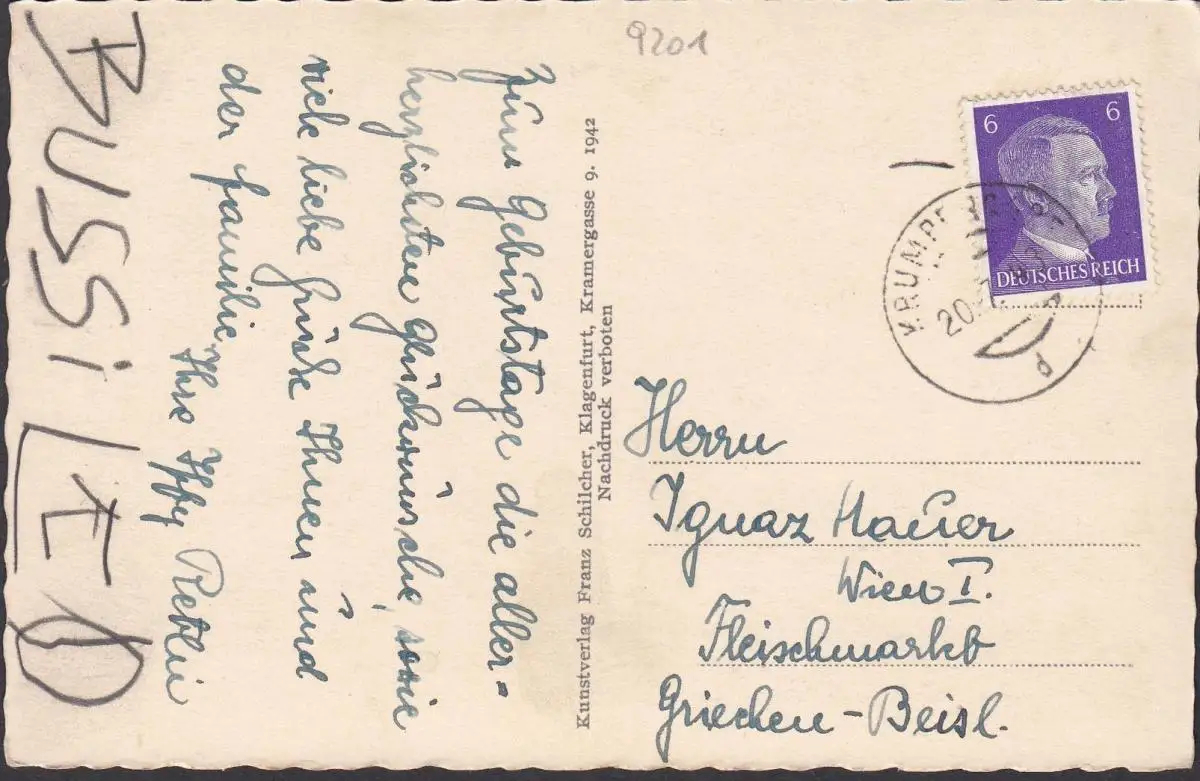 9201
6 6
DEUTSCHES REICH
KRUMPENDORF
20.
d
Zum Geburtstage die aller-
herzlichsten Glückwünsche, sowie
viele liebe Grüße Ihnen und
der Familie
Ihre
BUSSi
Kunstverlag Franz Schilcher, Klagenfurt, Kramergasse 9. 1942
Nachdruck verboten
Herrn
Ignaz Hauer
Wien I.
Fleischmarkt
Griechen-Beisl.